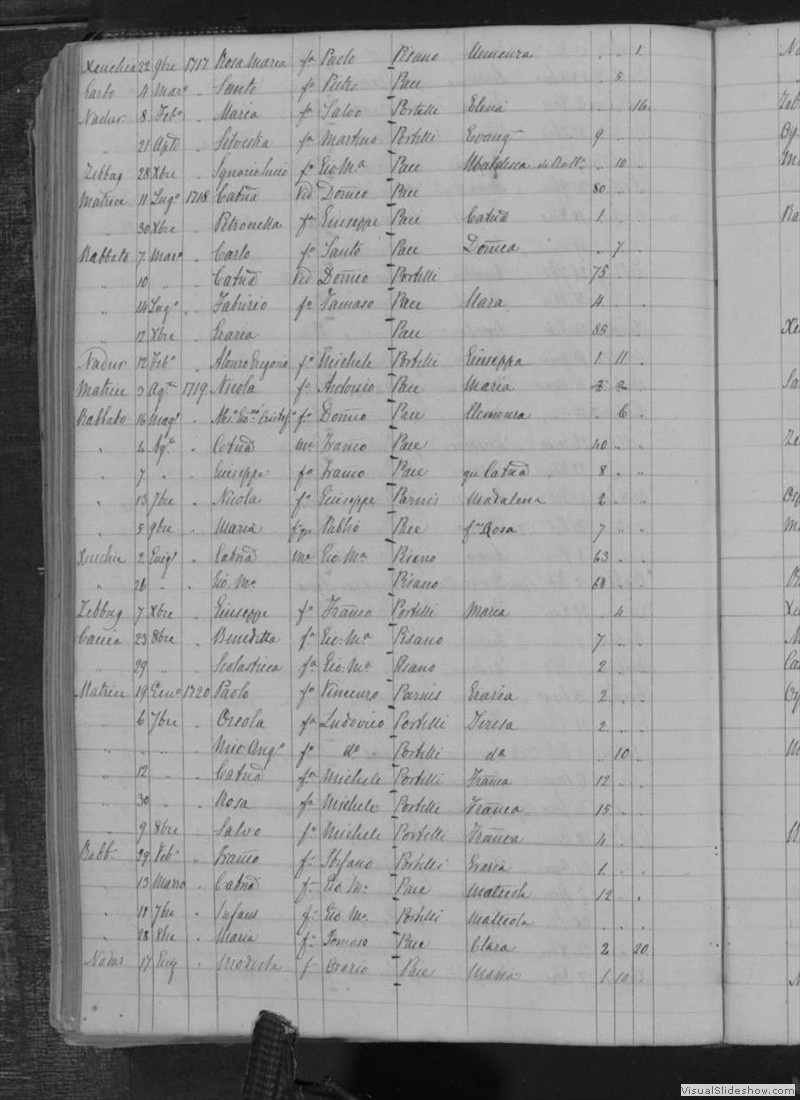 Xeuchia 22 9bre 1717 Rosa Maria fa Paolo Pisano Memeura . . 1.
Garbo 4 Maro „ Santo fo Pietro Pace . 5 .
Nadur 8 Febo „ Maria fa Salvo Portelli Elena . . 16
„ 21 Agto „ Silvestra fa Martino Portelli Evangta 9 . .
Zebbug 28 Xbre „ Ignazio Lucio fo Gio Ma Pace Ubaldesca . 10 .
Matrice 11 Lugo 1718 Catna Va Domco Pace 80 . .
„ 30 Xbre „ Petronella fa Giuseppe Pace Catna 1 . .
Rabbato 7 Maro „ Carlo fo Santo Pace Domca . 7 .
„ 10 „ „ Catna Va Domco Portelli 75 . .
„ 14 Lugo „ Fabrizio fo Tomaso Pace Mara 4 . .
„ 12 Xbre „ Grazia Pace 85 . .
Nadur 12 Febo „ Gregorio fo Michele Portelli Giuseppa 1 11 .
Matrice 1719 Nicola fo Antonio Pace Maria 2 2 .
Rabbato 16 „ fo Domco Pace . 6 .
„ 4 „ Catna me Franco Pace 40 . .
„ 7 „ „ Giuseppe fo Franco Pace qm Catna 8 . .
„ 13 7bre „ Nicola fo Giuseppe Parnis Madalena 2 . .
„ 5 9bre „ Maria Publio Pace Rosa 7 . .
Xeuchia 2 „ Catna me Gio Ma Pisano 63 . .
„ 26 „ „ Gio. Ma Pisano 68 . .
Zebbug 7 Xbre „ Giuseppe fo Franco Portelli Maria . 4 .
Caccia 23 8bre „ Benedetta fa Gio. Ma Pisano 7 . .
„ 29 „ „ Scolastica fa Gio. Ma Pisano 2 . .
Matrice 19 Geno 1720 Paolo fo Vincenzo Parnis Grazia 2 . .
„ 6 7bre „ Orsola fa Ludovico Portelli Teresa 2 . .
„ „ „ „ Mic Ango fo do Portelli da . 10 .
„ 12 „ „ Catna fa Michele Portelli Franca 12 . .
„ 30 „ „ Rosa fa Michele Portelli Franca 15 . .
„ 9 8bre „ Salvo fo Michele Portelli Franca 4 . .
Rabb. 29 Febo „ Franco fo Stefano Portelli Grazia 1 . .
„ 13 Marzo „ Catna fa Gio. Ma Pace Matteola 12 . .
„ 18 7bre „ Infans fo Gio Ma Portelli Matteola . . .
„ 28 8bre „ Maria fa Tomaso Pace Clara 2 . 20
Nadur 17 „ Modesta f Orazio Pace Maria 1 10 .
VisualSlideshow.com